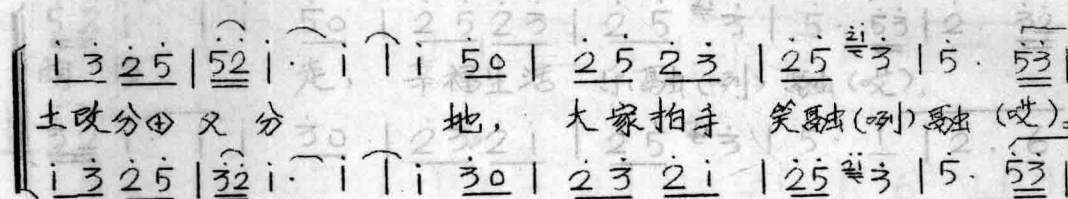 i 3 2 5 | 5 2 i · i | i 5 0 | 2 5 2 3 | 2 5 2i 3 | 5 · 5 3 |
土改分田 又分 地， 大家拍手 笑融(咧)融 (哎)。
i 3 2 5 | 3 2 i · i | i 3 0 | 2 3 2 i | 2 5 2i 3 | 5 · 5 3 |